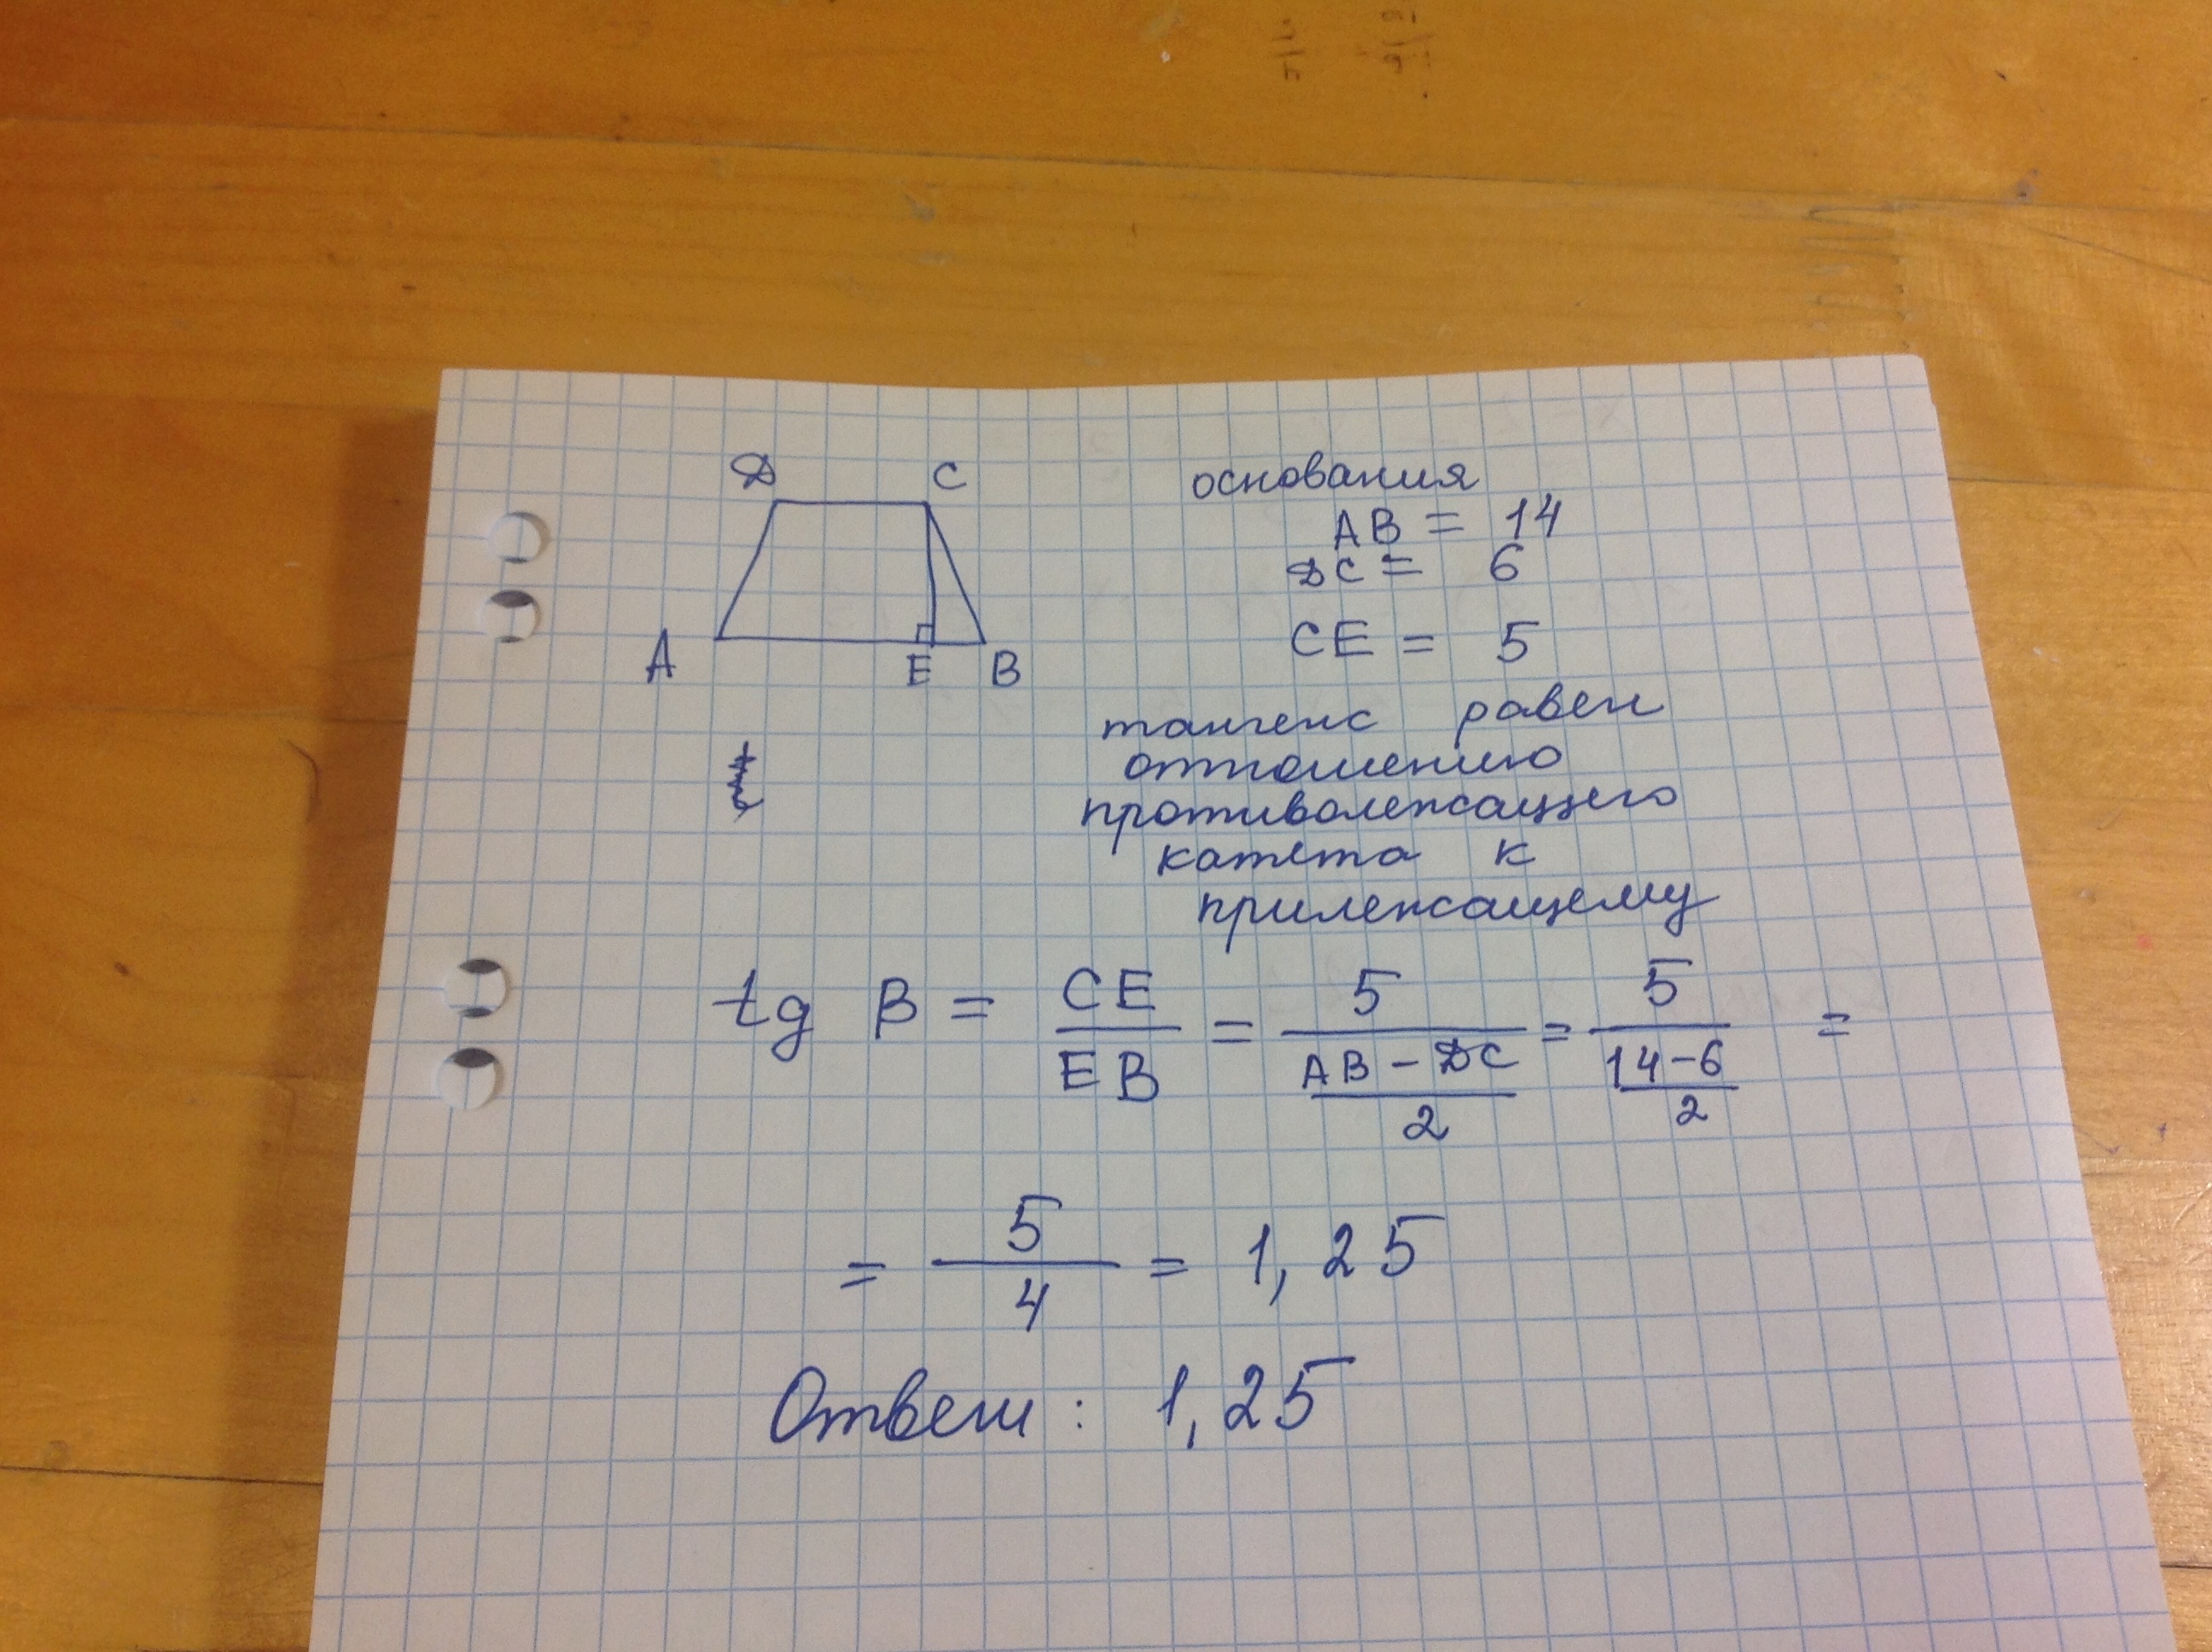 D C
A E B
основания
AB = 14
DC = 6
CE = 5
тангенс равен
отношению
противолежащего
катета к
прилежащему
tg B = CE/EB = 5/((AB-DC)/2) = 5/((14-6)/2) =
= 5/4 = 1,25
Ответ: 1,25